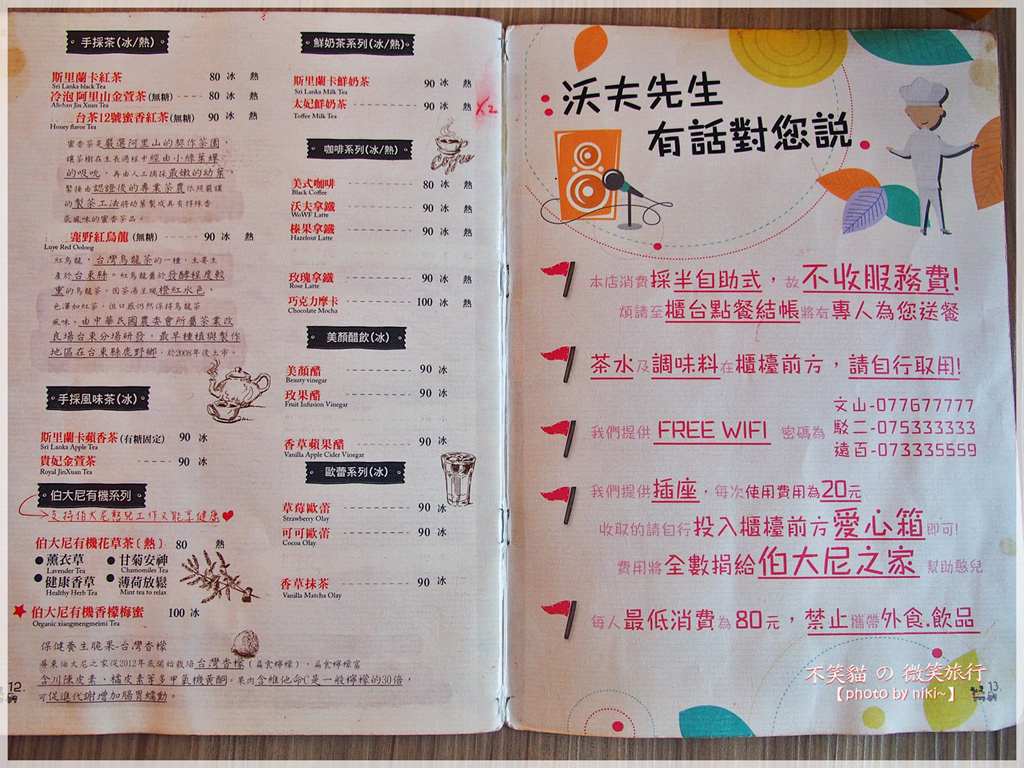 手採茶(冰/熱)
斯里蘭卡紅茶 80 冰 熱
Sri Lanka black Tea
冷泡 阿里山金萱茶(無糖) ------ 80 冰 熱
Alishan Jin Xuan Tea
台茶12號蜜香紅茶(無糖) 90 冰 熱
Honey flavor Tea
蜜香茶是嚴選阿里山的契作茶園，
讓茶樹在生長過程中經由小綠葉蟬
的吸吮，再由人工摘採最嫩的幼葉，
緊接由認證後的專業茶農依照嚴謹
的製茶工法將幼葉製成具有特殊香
氣風味的蜜香茶品。
鹿野紅烏龍(無糖) ------ 90 冰 熱
Luye Red Oolong
紅烏龍，台灣烏龍茶的一種，主要生
產於台東縣。紅烏龍屬於發酵程度較
重的烏龍茶，因茶湯呈現橙紅水色，
色澤如紅茶，但口感仍然保持烏龍茶
風味。由中華民國農委會所屬茶業改
良場台東分場研發，最早種植與製作
地區在台東縣鹿野鄉，於2008年後上市。
手採風味茶(冰)
斯里蘭卡蘋香茶(有糖固定) 90 冰
Sri Lanka Apple Tea
貴妃金萱茶 ------ 90 冰
Royal JinXuan Tea
伯大尼有機系列
支持伯大尼憨兒工作又能享健康♥
伯大尼有機花草茶(熱) 80 熱
●薰衣草 ●甘菊安神
Lavender Tea Chamomiles Tea
●健康香草 ●薄荷放鬆
Healthy Herb Tea Mint tea to relax
★伯大尼有機香檬梅蜜 100 冰
Organic xiangmengmeimi Tea
保健養生脆果-台灣香檬
屏東伯大尼之家從2012年底開始栽培台灣香檬(扁食檸檬)，扁食檸檬富
含川陳皮素、橘皮素等多甲氧機黃酮。果肉含維他命C是一般檸檬的30倍，
可促進代謝增加腸胃蠕動。
12
鮮奶茶系列(冰/熱)
斯里蘭卡鮮奶茶 90 冰 熱
Sri Lanka Milk Tea
太妃鮮奶茶 ------ 90 冰 熱
Toffee Milk Tea
X2
咖啡系列(冰/熱)
Coffee
美式咖啡 ------ 80 冰 熱
Black Coffee
沃夫拿鐵 ------ 90 冰 熱
WoWF Latte
榛果拿鐵 ------ 90 冰 熱
Hazelnut Latte
玫瑰拿鐵 ------ 90 冰 熱
Rose Latte
巧克力摩卡 ------ 100 冰 熱
Chocolate Mocha
美顏醋飲(冰)
美顏醋 ------ 90 冰
Beauty vinegar
玫果醋 ------ 90 冰
Fruit Infusion Vinegar
香草蘋果醋 ------ 90 冰
Vanilla Apple Cider Vinegar
歐蕾系列(冰)
草莓歐蕾 ------ 90 冰
Strawberry Olay
可可歐蕾 ------ 90 冰
Cocoa Olay
香草抹茶 ------ 90 冰
Vanilla Matcha Olay
沃夫先生
有話對您說
本店消費採半自助式，故不收服務費!
煩請至櫃台點餐結帳將有專人為您送餐
茶水及調味料在櫃檯前方，請自行取用!
文山-077677777
我們提供 FREE WIFI 密碼為 駁二-075333333
遠百-073335559
我們提供插座，每次使用費用為20元
收取的請自行投入櫃檯前方愛心箱即可!
費用將全數捐給伯大尼之家 幫助憨兒
每人最低消費為80元，禁止攜帶外食.飲品
不笑貓 の 微笑旅行
【photo by niki~】
13